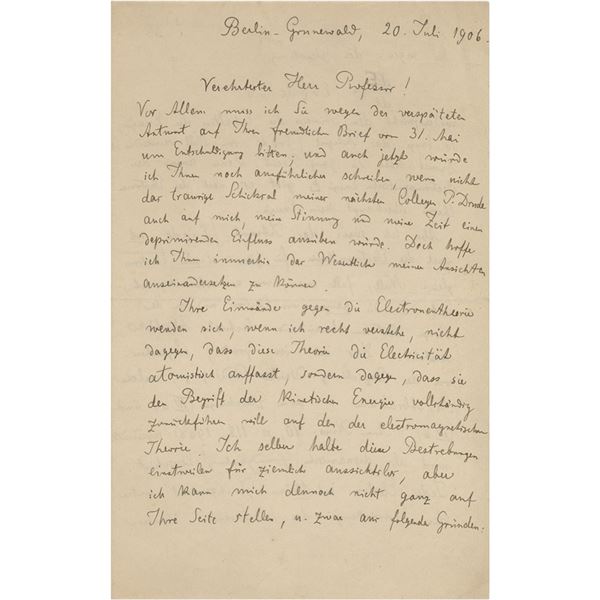 Berlin-Grunewald, 20. Juli 1906.
Verehrtester Herr Professor!
Vor Allem muss ich Sie wegen der verspäteten
Antwort auf Ihren freundlichen Brief vom 31. Mai
um Entschuldigung bitten, und auch jetzt würde
ich Ihnen noch ausführlicher schreiben, wenn nicht
das traurige Schicksal meines nächsten Collegen P. Drude
auch auf mich, meine Stimmung und meine Zeit einen
deprimirenden Einfluss ausüben würde. Doch hoffe
ich Ihnen immerhin das Wesentliche meiner Ansichten
auseinandersetzen zu können.
Ihre Einwände gegen die Electronentheorie
wenden sich, wenn ich recht verstehe, nicht
dagegen, dass diese Theorie die Electricität
atomistisch auffasst, sondern dagegen, dass sie
den Begriff der kinetischen Energie vollständig
zurückführen will auf den der electromagnetischen
Theorie. Ich selber halte diese Bestrebungen
einstweilen für ziemlich aussichtslos, aber
ich kann mich dennoch nicht ganz auf
Ihre Seite stellen, u. zwar aus folgenden Gründen: